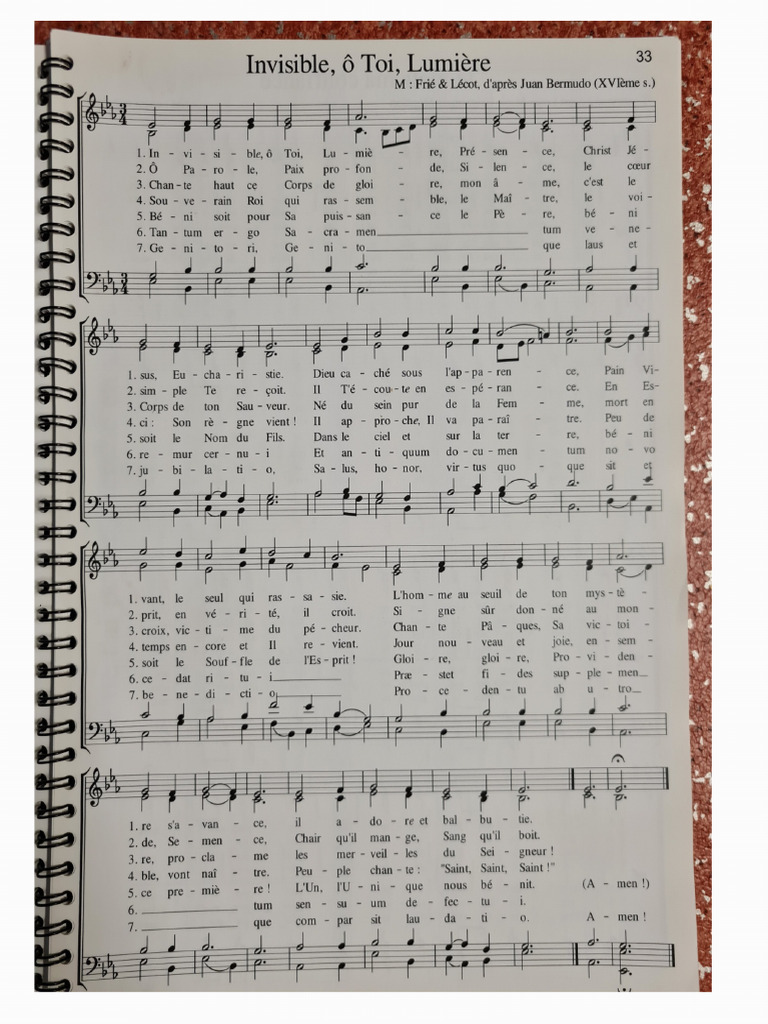 Invisible, ô Toi, Lumière
33
M : Frié & Lécot, d'après Juan Bermudo (XVIème s.)
1. In - vi - si - ble, ô Toi, Lu - miè - re, Pré - sen - ce, Christ Jé-
2. Ô Pa - ro - le, Paix pro - fon - de, Si - len - ce, le cœur
3. Chan - te haut ce Corps de gloi - re, mon â - me, c'est le
4. Sou - ve - rain Roi qui ras - sem - ble, le Maî - tre, le voi -
5. Bé - ni soit pour Sa puis - san - ce le Pè - re, bé - ni
6. Tan - tum er - go Sa - cra - men tum ve - ne -
7. Ge - ni - to - ri, Ge - ni - to que laus et
1. sus, Eu - cha - ri - stie. Dieu ca - ché sous l'ap - pa - ren - ce, Pain Vi-
2. sim - ple Te re - çoit. Il T'é - cou - te en es - pé - ran - ce. En Es-
3. Corps de ton Sau - veur. Né du sein pur de la Fem - me, mort en
4. ci : Son rè - gne vient ! Il ap - pro - che, Il va pa - raî - tre. Peu de
5. soit le Nom du Fils. Dans le ciel et sur la ter - re, bé - ni
6. re - mur cer - nu - i Et an - ti - quum do - cu - men - tum no - vo
7. ju - bi - la - ti - o, Sa - lus, ho - nor, vir - tus quo - que sit et
1. vant, le seul qui ras - sa - sie. L'hom - me au seuil de ton mys - tè -
2. prit, en vé - ri - té, il croit. Si - gne sûr don - né au mon -
3. croix, vic - ti - me du pé - cheur. Chan - te Pâ - ques, Sa vic - toi -
4. temps en - core et Il re - vient. Jour nou - veau et joie, en - sem -
5. soit le Souf - fle de l'Es - prit ! Gloi - re, gloi - re, Pro - vi - den -
6. ce - dat ri - tu - i Præ - stet fi - des sup - ple - men
7. be - ne - di - cti - o Pro - ce - den - tu ab u - tro
1. re s'a - van - ce, il a - do - re et bal - bu - tie.
2. de, Se - men - ce, Chair qu'il man - ge, Sang qu'il boit.
3. re, pro - cla - me les mer - veil - les du Sei - gneur !
4. ble, vont naî - tre. Peu - ple chan - te : "Saint, Saint, Saint !"
5. ce pre - miè - re ! L'Un, l'U - ni - que nous bé - nit. (A - men !)
6. tum sen - su - um de - fec - tu - i.
7. que com - par sit lau - da - ti - o. A - men !